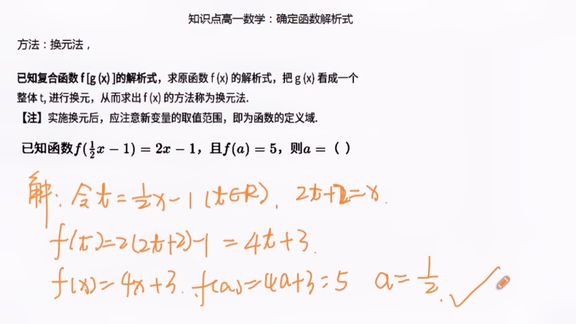 知识点高一数学：确定函数解析式
方法：换元法，
已知复合函数 f [g (x) ]的解析式，求原函数 f (x) 的解析式，把 g (x) 看成一个
整体 t, 进行换元，从而求出 f (x) 的方法称为换元法.
【注】实施换元后，应注意新变量的取值范围，即为函数的定义域.
已知函数f(½x − 1) = 2x − 1，且f(a) = 5，则a = （ ）
解：令t=½x-1 (t∈R)，2t+2=x.
f(t)=2(2t+2)-1 = 4t+3.
f(x)=4x+3. f(a)=4a+3=5 a=½. ✓